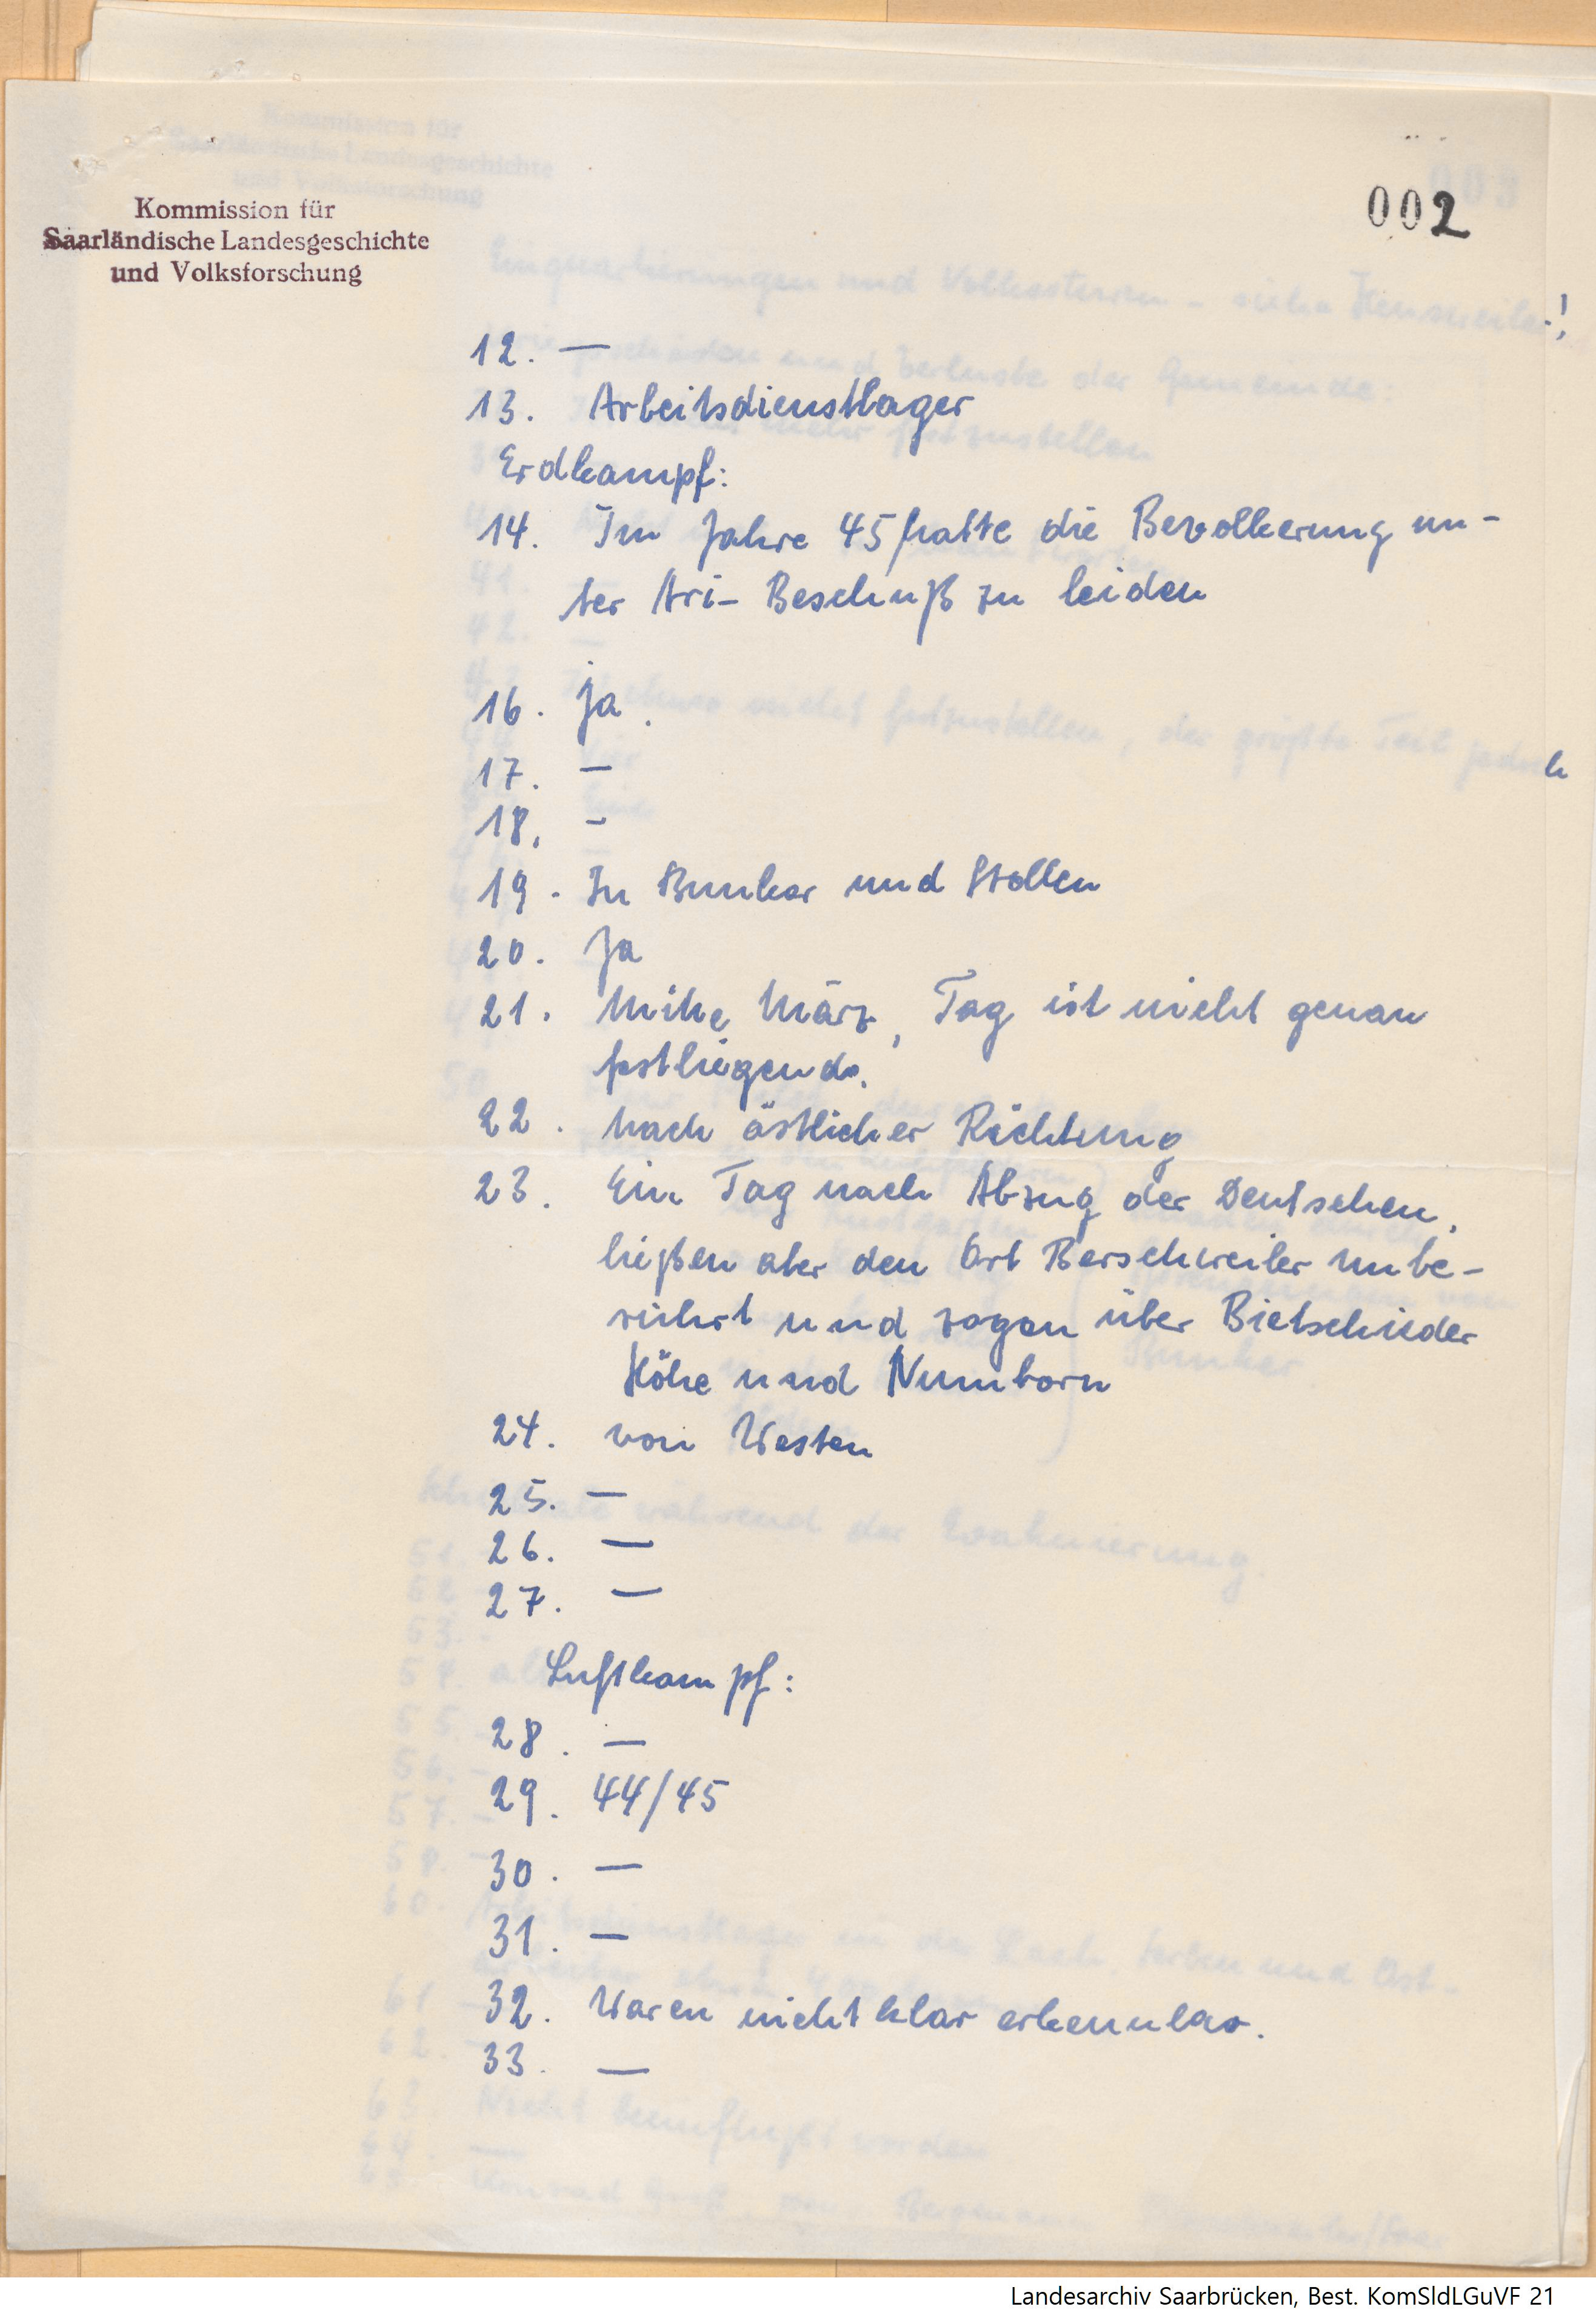 Kommission für
Saarländische Landesgeschichte
und Volksforschung
002
12. —
13. Arbeitsdienstlager
Erdkampf:
14. Im Jahre 45 hatte die Bevolkerung un-
ter Ari- Beschuß zu leiden
16. ja.
17. —
18. -
19. In Bunker und Stollen
20. Ja
21. Mitte März, Tag ist nicht genau
festliegend.
22. nach östlicher Richtung
23. Ein Tag nach Abzug der Deutschen,
ließen aber den Ort Berschweiler unbe-
rührt und zogen über Bietschieder
Höhe und Numborn
24. von Westen
25. —
26. —
27. —
Luftkampf:
28. —
29. 44/45
30. —
31. —
32. Waren nicht klar erkennbar.
33. —
Landesarchiv Saarbrücken, Best. KomSldLGuVF 21